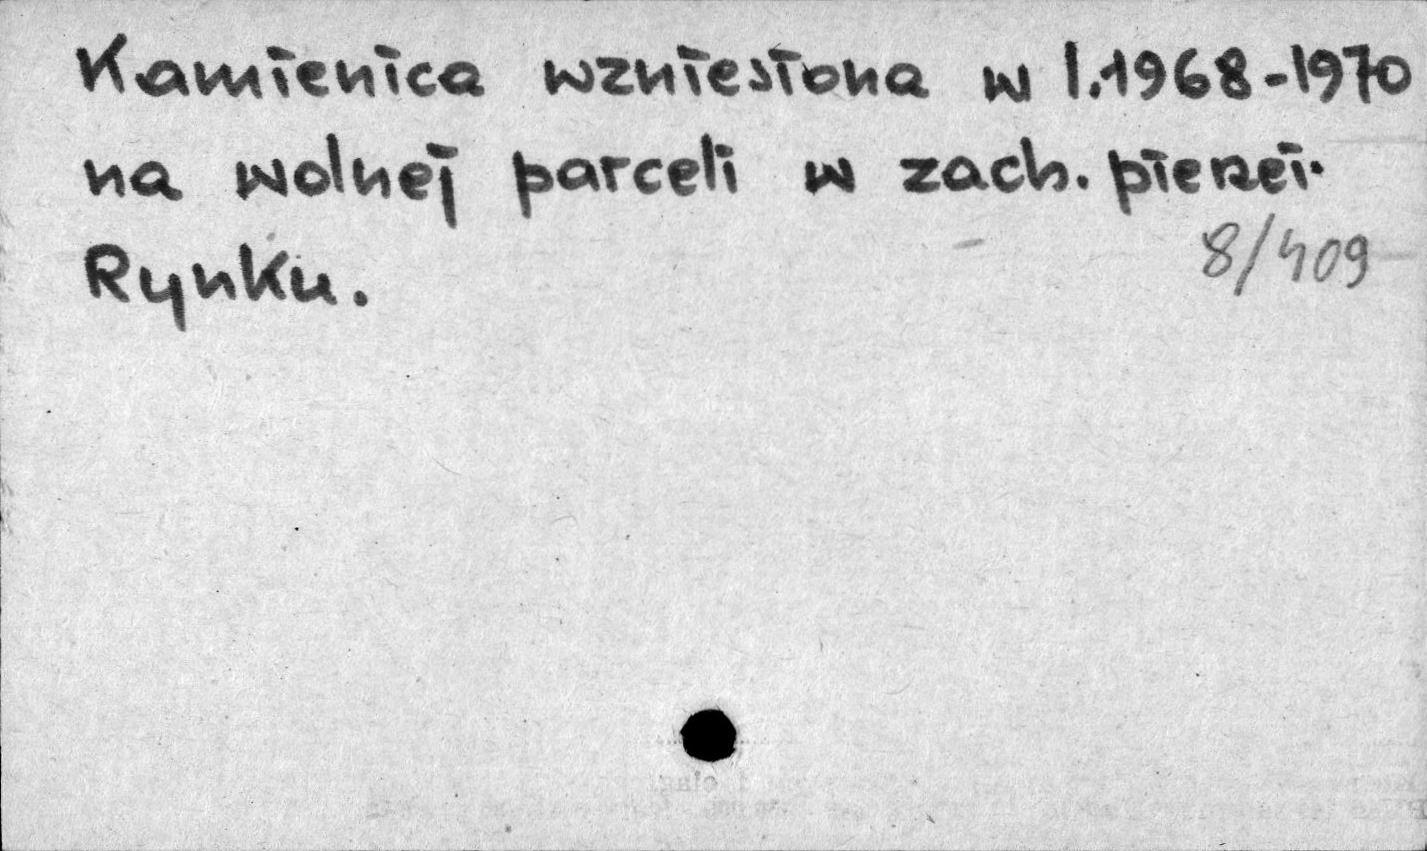 Kamienica wzniesiona w l.1968-1970
na wolnej parceli w zach. pierzei
Rynku.
8/409